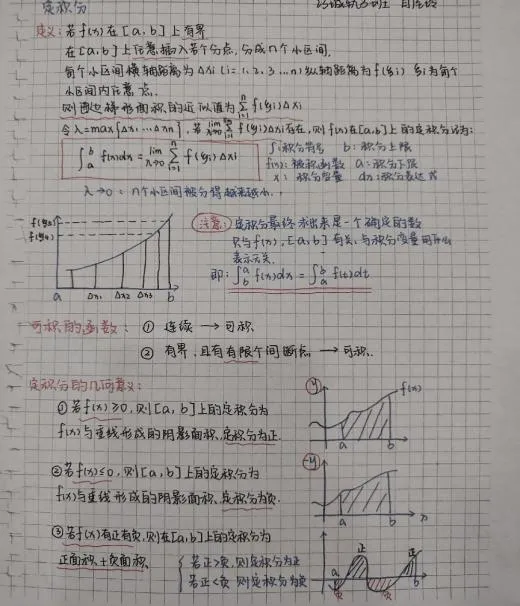 定积分
定义：若f(x)在[a,b]上有界
在[a,b]上任意插入若干分点，分成n个小区间
每个小区间横轴距离为Δxi (i=1,2,3…n) 纵轴距离为f(ξi) ξi为每个
小区间内任意点.
则曲边梯形面积的近似值为 Σ f(ξi)Δxi
i=1
令λ=max{Δx₁…Δxn}, 若 lim λ→0 Σ f(ξi)Δxi存在，则f(x)在[a,b]上的定积分记为:
∫ᵇₐ f(x)dx = lim λ→0 Σ f(ξi)Δxi
∫:积分符号 b:积分上限
f(x):被积函数 a:积分下限
x:积分变量 dx:积分表达式
λ→0: n个小区间被分得越来越小
f(ξ3)
f(ξ2)
a Δx₁ Δx2 Δx3 b
注意: 定积分最终求出来是一个确定的数
只与f(x),[a,b]有关,与积分变量用
表示无关.
即: ∫ᵃ_b f(x)dx = ∫ᵇₐ f(t)dt
可积的函数: ① 连续 → 可积.
② 有界,且有有限个间断点 → 可积.
定积分的几何意义:
①若f(x)≥0,则[a,b]上的定积分为
f(x)与垂线形成的阴影面积,定积分为正.
y f(x)
a b
②若f(x)≤0,则[a,b]上的定积分为
f(x)与垂线形成的阴影面积,定积分为负.
-y
a b x
③若f(x)有正有负,则在[a,b]上的定积分为
正面积+负面积.
若正>负,则定积分为正
若正<负 则定积分为负
a 正 正 b
负 负